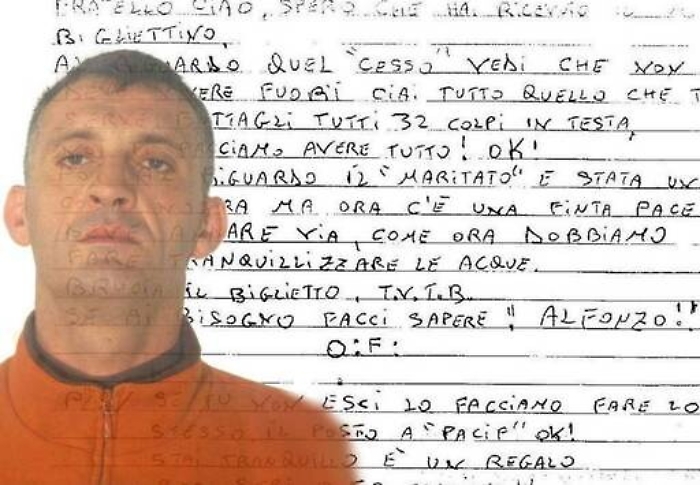 FRATELLO CIAO, SPERO CHE HAI RICEVUTO IL
BIGLIETTINO,
RIGUARDO QUEL "CESSO" VEDI CHE NON
FUORI CIAI TUTTO QUELLO CHE
TUTTI 32 COLPI IN TESTA,
AVERE TUTTO! OK!
RIGUARDO IL "MARITATO" E STATA UN
MA ORA C'E UNA FINTA PACE
VIA, COME ORA DOBBIAMO
FARE TRANQUILLIZZARE LE ACQUE.
BRUCIA IL BIGLIETTO, T.V.T.B.
SE AI BISOGNO FACCI SAPERE "ALFONZO!"
O:F:
SE TU NON ESCI LO FACCIAMO FARE LO
STESSO IL POSTO A "PACIF" OK!
STAI TRANQUILLO E' UN REGALO